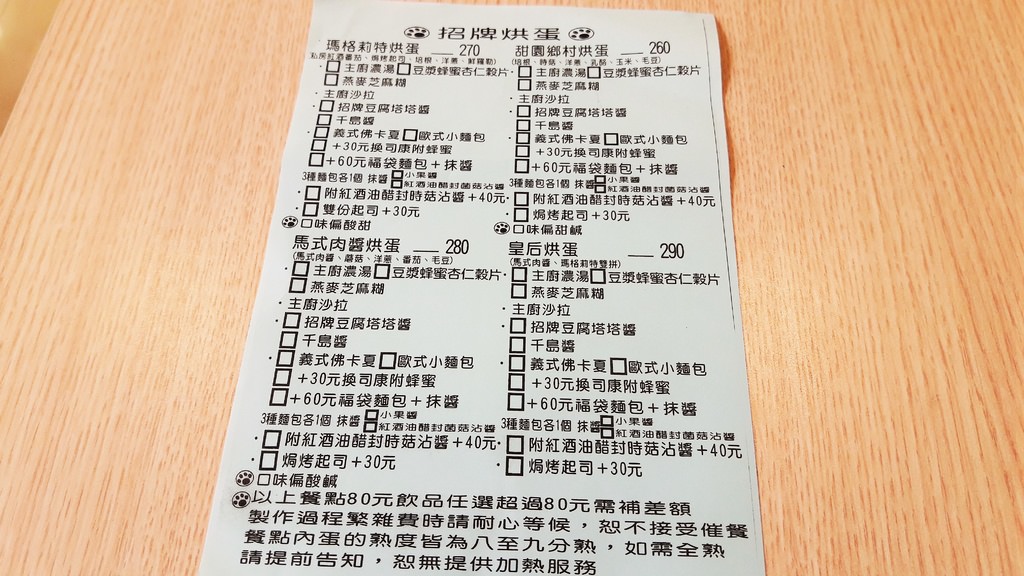 招牌烘蛋
瑪格莉特烘蛋 ___ 270
(私房紅酒番茄、焗烤起司、培根、洋蔥、鮮羅勒)
·□主廚濃湯□豆漿蜂蜜杏仁穀片
□燕麥芝麻糊
·主廚沙拉
□招牌豆腐塔塔醬
□千島醬
·□義式佛卡夏□歐式小麵包
□+30元換司康附蜂蜜
□+60元福袋麵包+抹醬
3種麵包各1個 抹醬□小果醬
□紅酒油醋封菌菇沾醬
·□附紅酒油醋封時菇沾醬+40元
·□雙份起司+30元
口味偏酸甜
甜園鄉村烘蛋 ___ 260
(培根、時菇、洋蔥、乳酪、玉米、毛豆)
·□主廚濃湯□豆漿蜂蜜杏仁穀片
□燕麥芝麻糊
·主廚沙拉
□招牌豆腐塔塔醬
□千島醬
·□義式佛卡夏□歐式小麵包
□+30元換司康附蜂蜜
□+60元福袋麵包+抹醬
3種麵包各1個 抹醬□小果醬
□紅酒油醋封菌菇沾醬
·□附紅酒油醋封時菇沾醬+40元
·□焗烤起司+30元
口味偏甜鹹
馬式肉醬烘蛋 ___ 280
(馬式肉醬、蘑菇、洋蔥、番茄、毛豆)
·□主廚濃湯□豆漿蜂蜜杏仁穀片
□燕麥芝麻糊
·主廚沙拉
□招牌豆腐塔塔醬
□千島醬
·□義式佛卡夏□歐式小麵包
□+30元換司康附蜂蜜
□+60元福袋麵包+抹醬
3種麵包各1個 抹醬□小果醬
□紅酒油醋封菌菇沾醬
·□附紅酒油醋封時菇沾醬+40元
·□焗烤起司+30元
口味偏酸鹹
皇后烘蛋 ___ 290
(馬式肉醬、瑪格莉特雙拼)
·□主廚濃湯□豆漿蜂蜜杏仁穀片
□燕麥芝麻糊
·主廚沙拉
□招牌豆腐塔塔醬
□千島醬
·□義式佛卡夏□歐式小麵包
□+30元換司康附蜂蜜
□+60元福袋麵包+抹醬
3種麵包各1個 抹醬□小果醬
□紅酒油醋封菌菇沾醬
·□附紅酒油醋封時菇沾醬+40元
·□焗烤起司+30元
以上餐點80元飲品任選超過80元需補差額
製作過程繁雜費時請耐心等候，恕不接受催餐
餐點內蛋的熟度皆為八至九分熟，如需全熟
請提前告知，恕無提供加熱服務